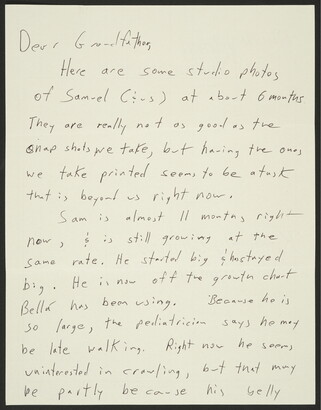 Dear Grandfather,
Here are some studio photos
of Samuel (& us) at about 6 months
They are really not as good as the
snap shots we take, but having the ones
we take printed seems to be a task
that is beyond us right now.
Sam is almost 11 months right
now, & is still growing at the
same rate. He started big & has stayed
big. He is now off the growth chart
Bella has been using. Because he is
so large, the pediatrician says he may
be late walking. Right now he seems
uninterested in crawling, but that may
be partly because his belly